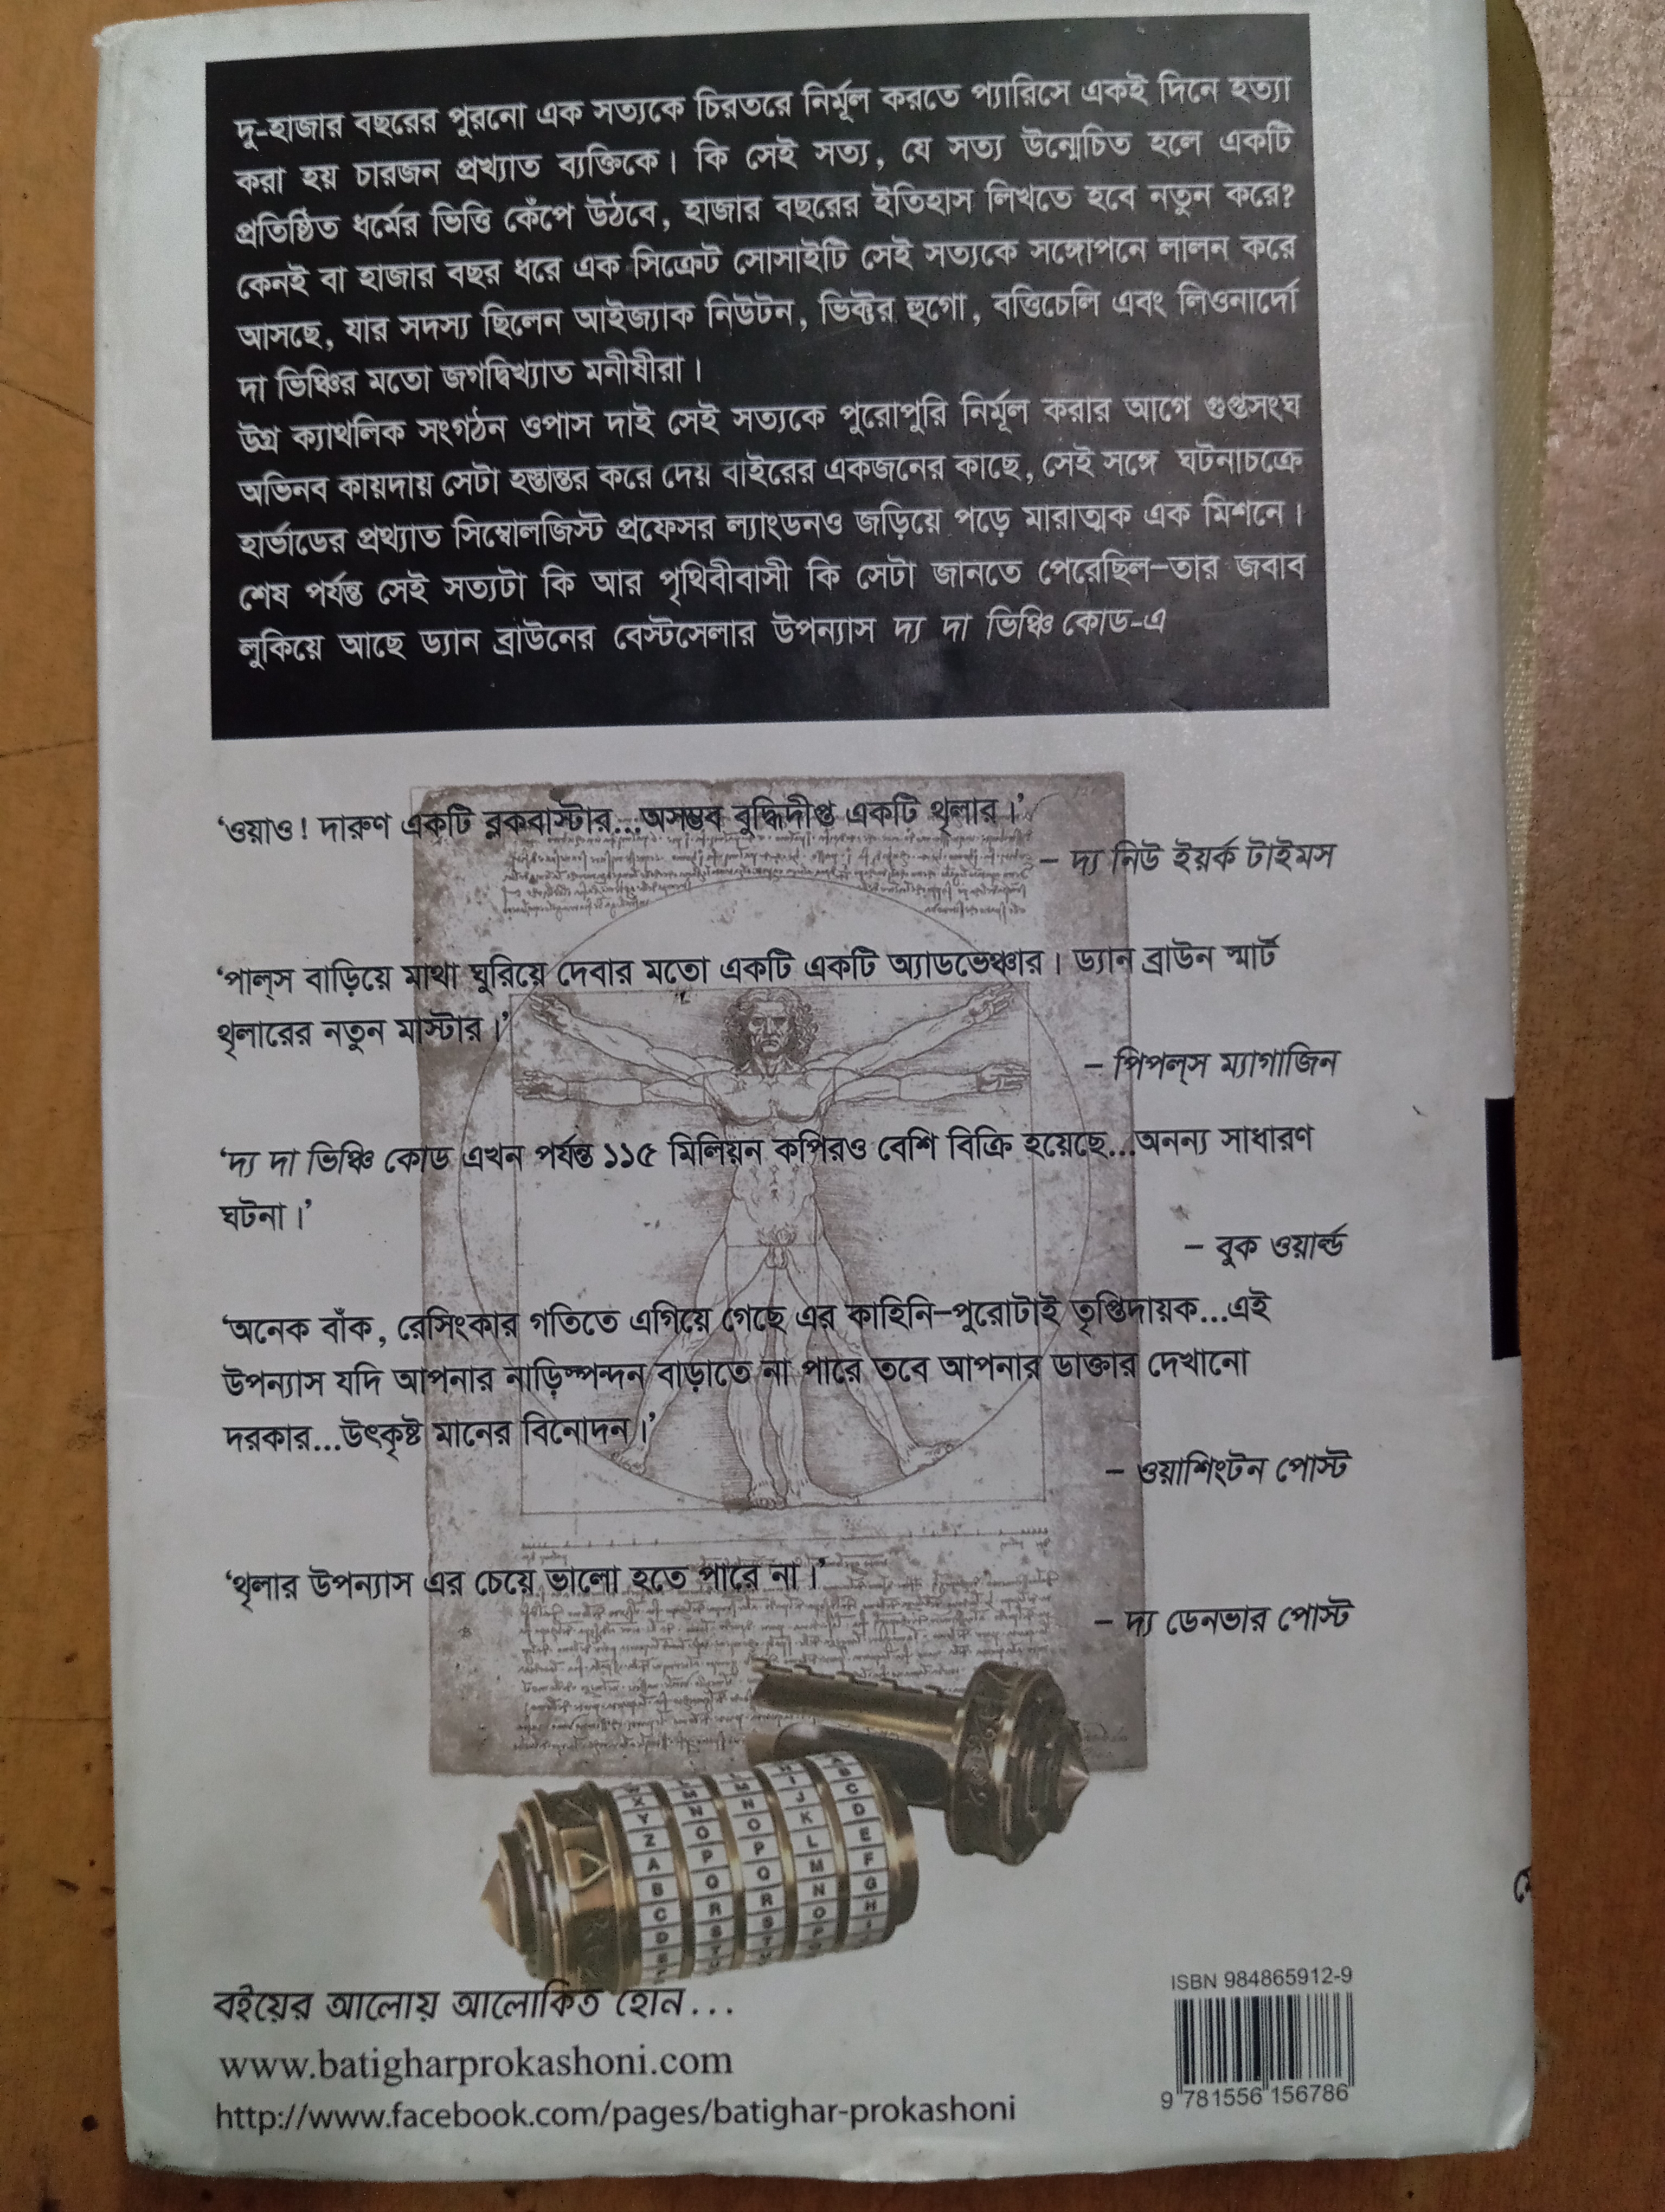 দু-হাজার বছরের পুরনো এক সত্যকে চিরতরে নির্মূল করতে প্যারিসে একই দিনে হত্যা
করা হয় চারজন প্রখ্যাত ব্যক্তিকে। কি সেই সত্য, যে সত্য উন্মেচিত হলে একটি
প্রতিষ্ঠিত ধর্মের ভিত্তি কেঁপে উঠবে, হাজার বছরের ইতিহাস লিখতে হবে নতুন করে?
কেনই বা হাজার বছর ধরে এক সিক্রেট সোসাইটি সেই সত্যকে সঙ্গোপনে লালন করে
আসছে, যার সদস্য ছিলেন আইজ্যাক নিউটন, ভিক্টর হুগো, বত্তিচেলি এবং লিওনার্দো
দা ভিঞ্চির মতো জগদ্বিখ্যাত মনীষীরা।
উগ্র ক্যাথলিক সংগঠন ওপাস দাই সেই সত্যকে পুরোপুরি নির্মূল করার আগে গুপ্তসংঘ
অভিনব কায়দায় সেটা হস্তান্তর করে দেয় বাইরের একজনের কাছে, সেই সঙ্গে ঘটনাচক্রে
হার্ভাডের প্রথ্যাত সিম্বোলজিস্ট প্রফেসর ল্যাংডনও জড়িয়ে পড়ে মারাত্মক এক মিশনে।
শেষ পর্যন্ত সেই সত্যটা কি আর পৃথিবীবাসী কি সেটা জানতে পেরেছিল–তার জবাব
লুকিয়ে আছে ড্যান ব্রাউনের বেস্টসেলার উপন্যাস দ্য দা ভিঞ্চি কোড-এ
‘ওয়াও! দারুণ একটি ব্লকবাস্টার...অসম্ভব বুদ্ধিদীপ্ত একটি থৃলার।’
– দ্য নিউ ইয়র্ক টাইমস
‘পাল্‌স বাড়িয়ে মাথা ঘুরিয়ে দেবার মতো একটি একটি অ্যাডভেঞ্চার। ড্যান ব্রাউন স্মার্ট
থৃলারের নতুন মাস্টার।’
– পিপল্‌স ম্যাগাজিন
‘দ্য দা ভিঞ্চি কোড এখন পর্যন্ত ১১৫ মিলিয়ন কপিরও বেশি বিক্রি হয়েছে...অনন্য সাধারণ
ঘটনা।’
– বুক ওয়ার্ল্ড
‘অনেক বাঁক, রেসিংকার গতিতে এগিয়ে গেছে এর কাহিনি–পুরোটাই তৃপ্তিদায়ক...এই
উপন্যাস যদি আপনার নাড়িস্পন্দন বাড়াতে না পারে তবে আপনার ডাক্তার দেখানো
দরকার...উৎকৃষ্ট মানের বিনোদন।’
– ওয়াশিংটন পোস্ট
‘থৃলার উপন্যাস এর চেয়ে ভালো হতে পারে না।’
– দ্য ডেনভার পোস্ট
বইয়ের আলোয় আলোকিত হোন...
www.batigharprokashoni.com
http://www.facebook.com/pages/batighar-prokashoni
ISBN 984865912-9
9 781556 156786